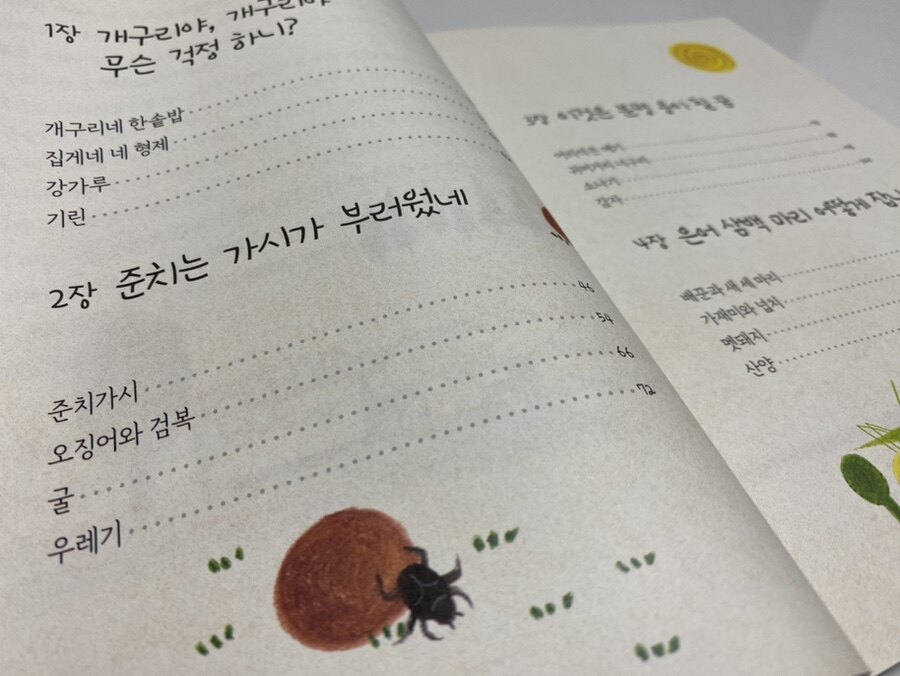 1장 개구리야, 개구리야
무슨 걱정 하니?
개구리네 한솥밥
집게네 네 형제
강가루
기린
2장 준치는 가시가 부러웠네
준치가시 46
오징어와 검복 54
굴 66
우레기 72
3장 이것은
감자
4장 은어 삼백 마리 어떻게 잡니
배꾼과 새 세 마리
가재미와 넙치
멧돼지
산양